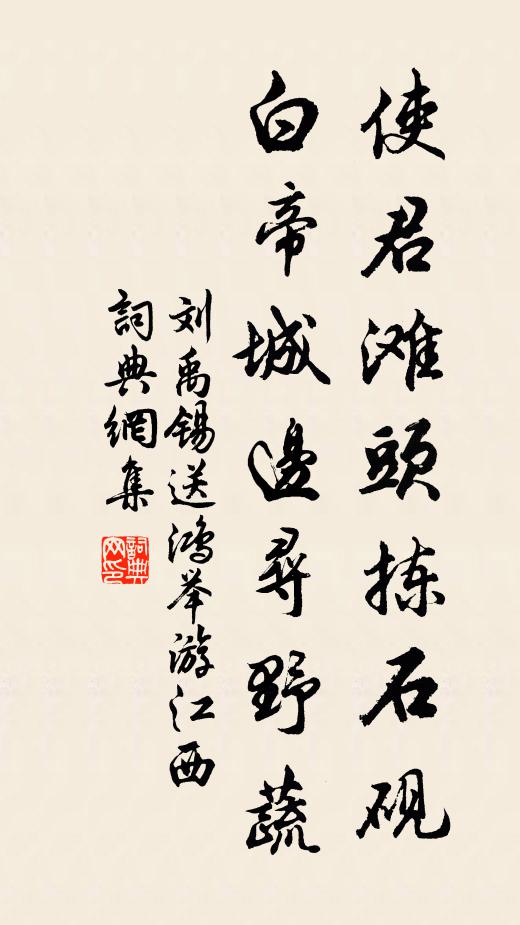 使君滩頭拣石砚
白帝城邊尋野蔬
刘禹锡送鸿举游江西
詞典網集
詞典网印